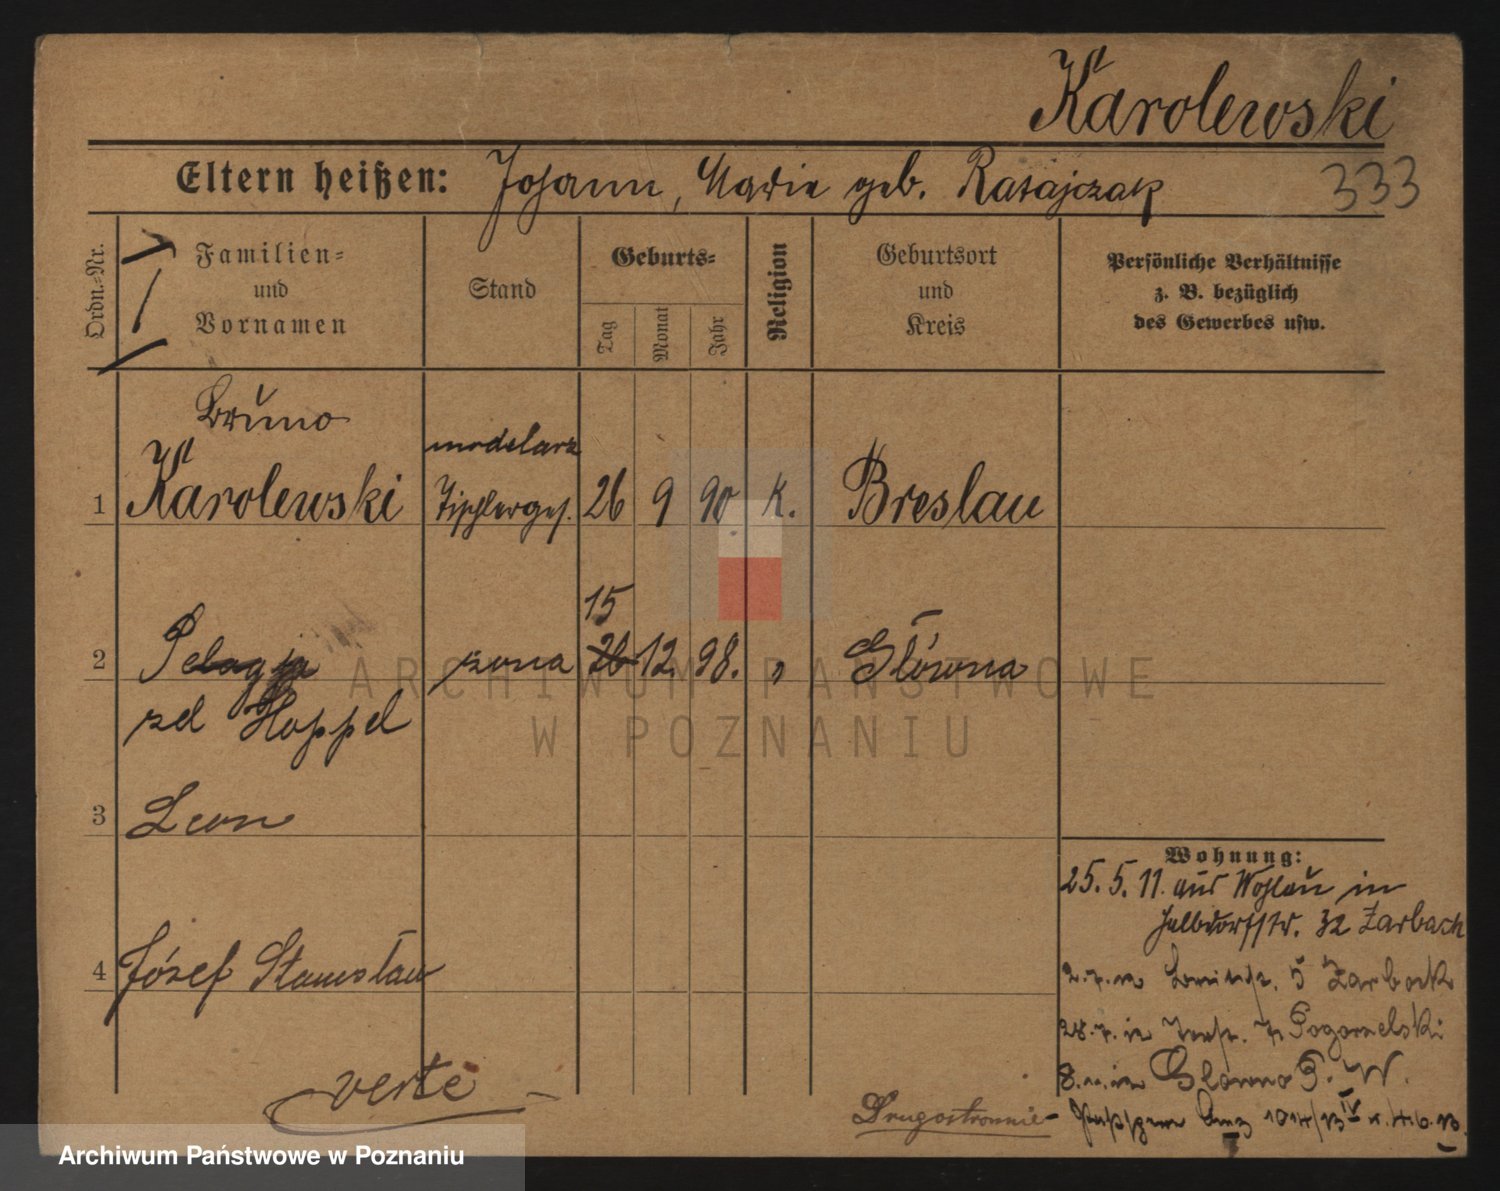 Karolewski
Eltern heißen: Johann, Marie geb. Ratajczak 333
Ordn.-Nr.
Familien-
und
Vornamen
Stand
Geburts-
Tag
Monat
Jahr
Religion
Geburtsort
und
Kreis
Persönliche Verhältnisse
z. B. bezüglich
des Gewerbes usw.
Bruno
modelarz
1 Karolewski Tischlerges. 26 9 90 K. Breslau
15
2 Pelagja żona 26 12 98. " Główna
zd Hoppel
3 Leon
4 Józef Stanisław
Wohnung:
25. 5. 11. aus Wohlau in
Halbdorfstr. 32 Zarbach
5 Zarbock
28. 7. Pogorzelski
8. Glowno P. W.
verte
Drugostronnie
ARCHIWUM PAŃSTWOWE
W POZNANIU
Archiwum Państwowe w Poznaniu